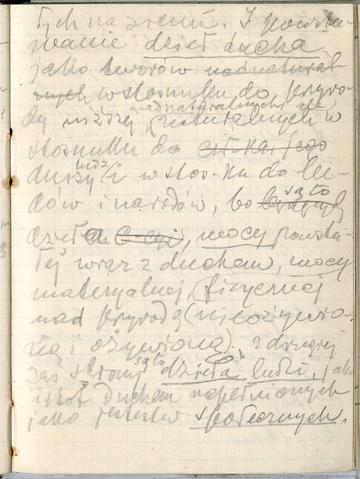 tych na ziemi. I powsta-
wanie dzieł ducha
jako tworów nadnatural
nych w stosunku do przyro-
dy niższej (nadnaturalnych ale naturalnych w
stosunku do
duszy ludzi w stos-ku do lu-
dów i narodów, bo są to
dzieła mocy powsta-
łej wraz z duchem, mocy
materjalnej, fizycznej
nad przyrodą (nieożywio-
ną i ożywioną). z drugiej
zaś strony są to dzieła ludzi, jako
istot duchem napełnionych
jako jestestw społecznych.